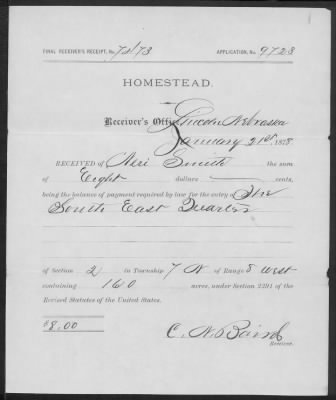 FINAL RECEIVER'S RECEIPT, No. 7473 APPLICATION, No. 9723
HOMESTEAD.
Receiver's Office, Lincoln Nebraska
January 21st, 1878.
RECEIVED OF Neri Smith the sum
of Eight dollars — cents,
being the balance of payment required by law for the entry of The
South East Quarter
of Section 2 in Township 7 N of Range 8 West
containing 160 acres, under Section 2291 of the
Revised Statutes of the United States.
$8.00 C. N. Baird
Receiver.